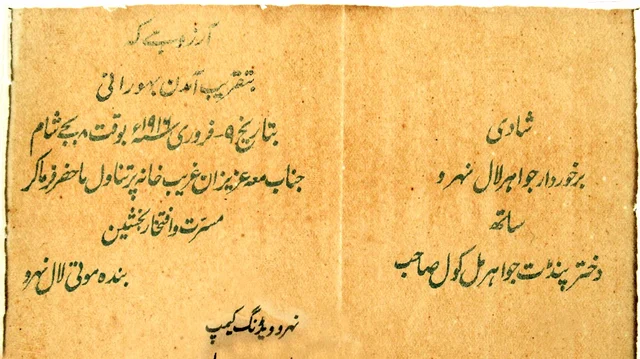 شادی
برخوردار جواہر لال نہرو
ساتھ
دختر پنڈت جواہر مل کول صاحب
آرزو ہے کہ
بتقریب آمدن بہورانی
بتاریخ ۹- فروری ۱۹۱۶ء بوقت ۸ بجے شام
جناب معہ عزیزان غریب خانہ پر تناول ماحضر فرما کر
مسرت و افتخار بخشیں
بندہ موتی لال نہرو
نہرو ویڈنگ کیمپ